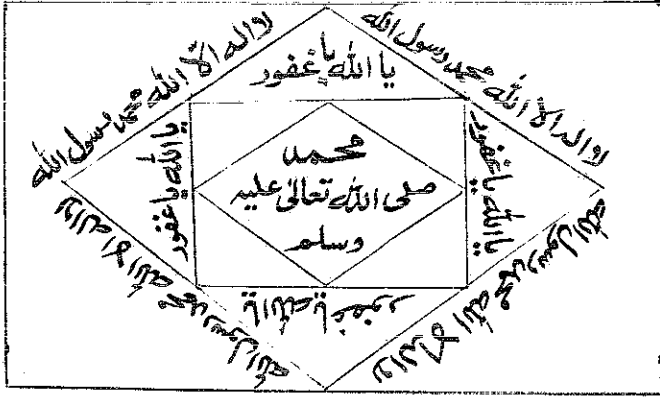 لا اله الا الله محمد رسول الله
لا اله الا الله محمد رسول الله
يا الله يا غفور
يا الله يا غفور
يا الله يا غفور
محمد
صلى الله تعالى عليه
وسلم
يا الله يا غفور
لا اله الا الله محمد رسول الله
لا اله الا الله محمد رسول الله